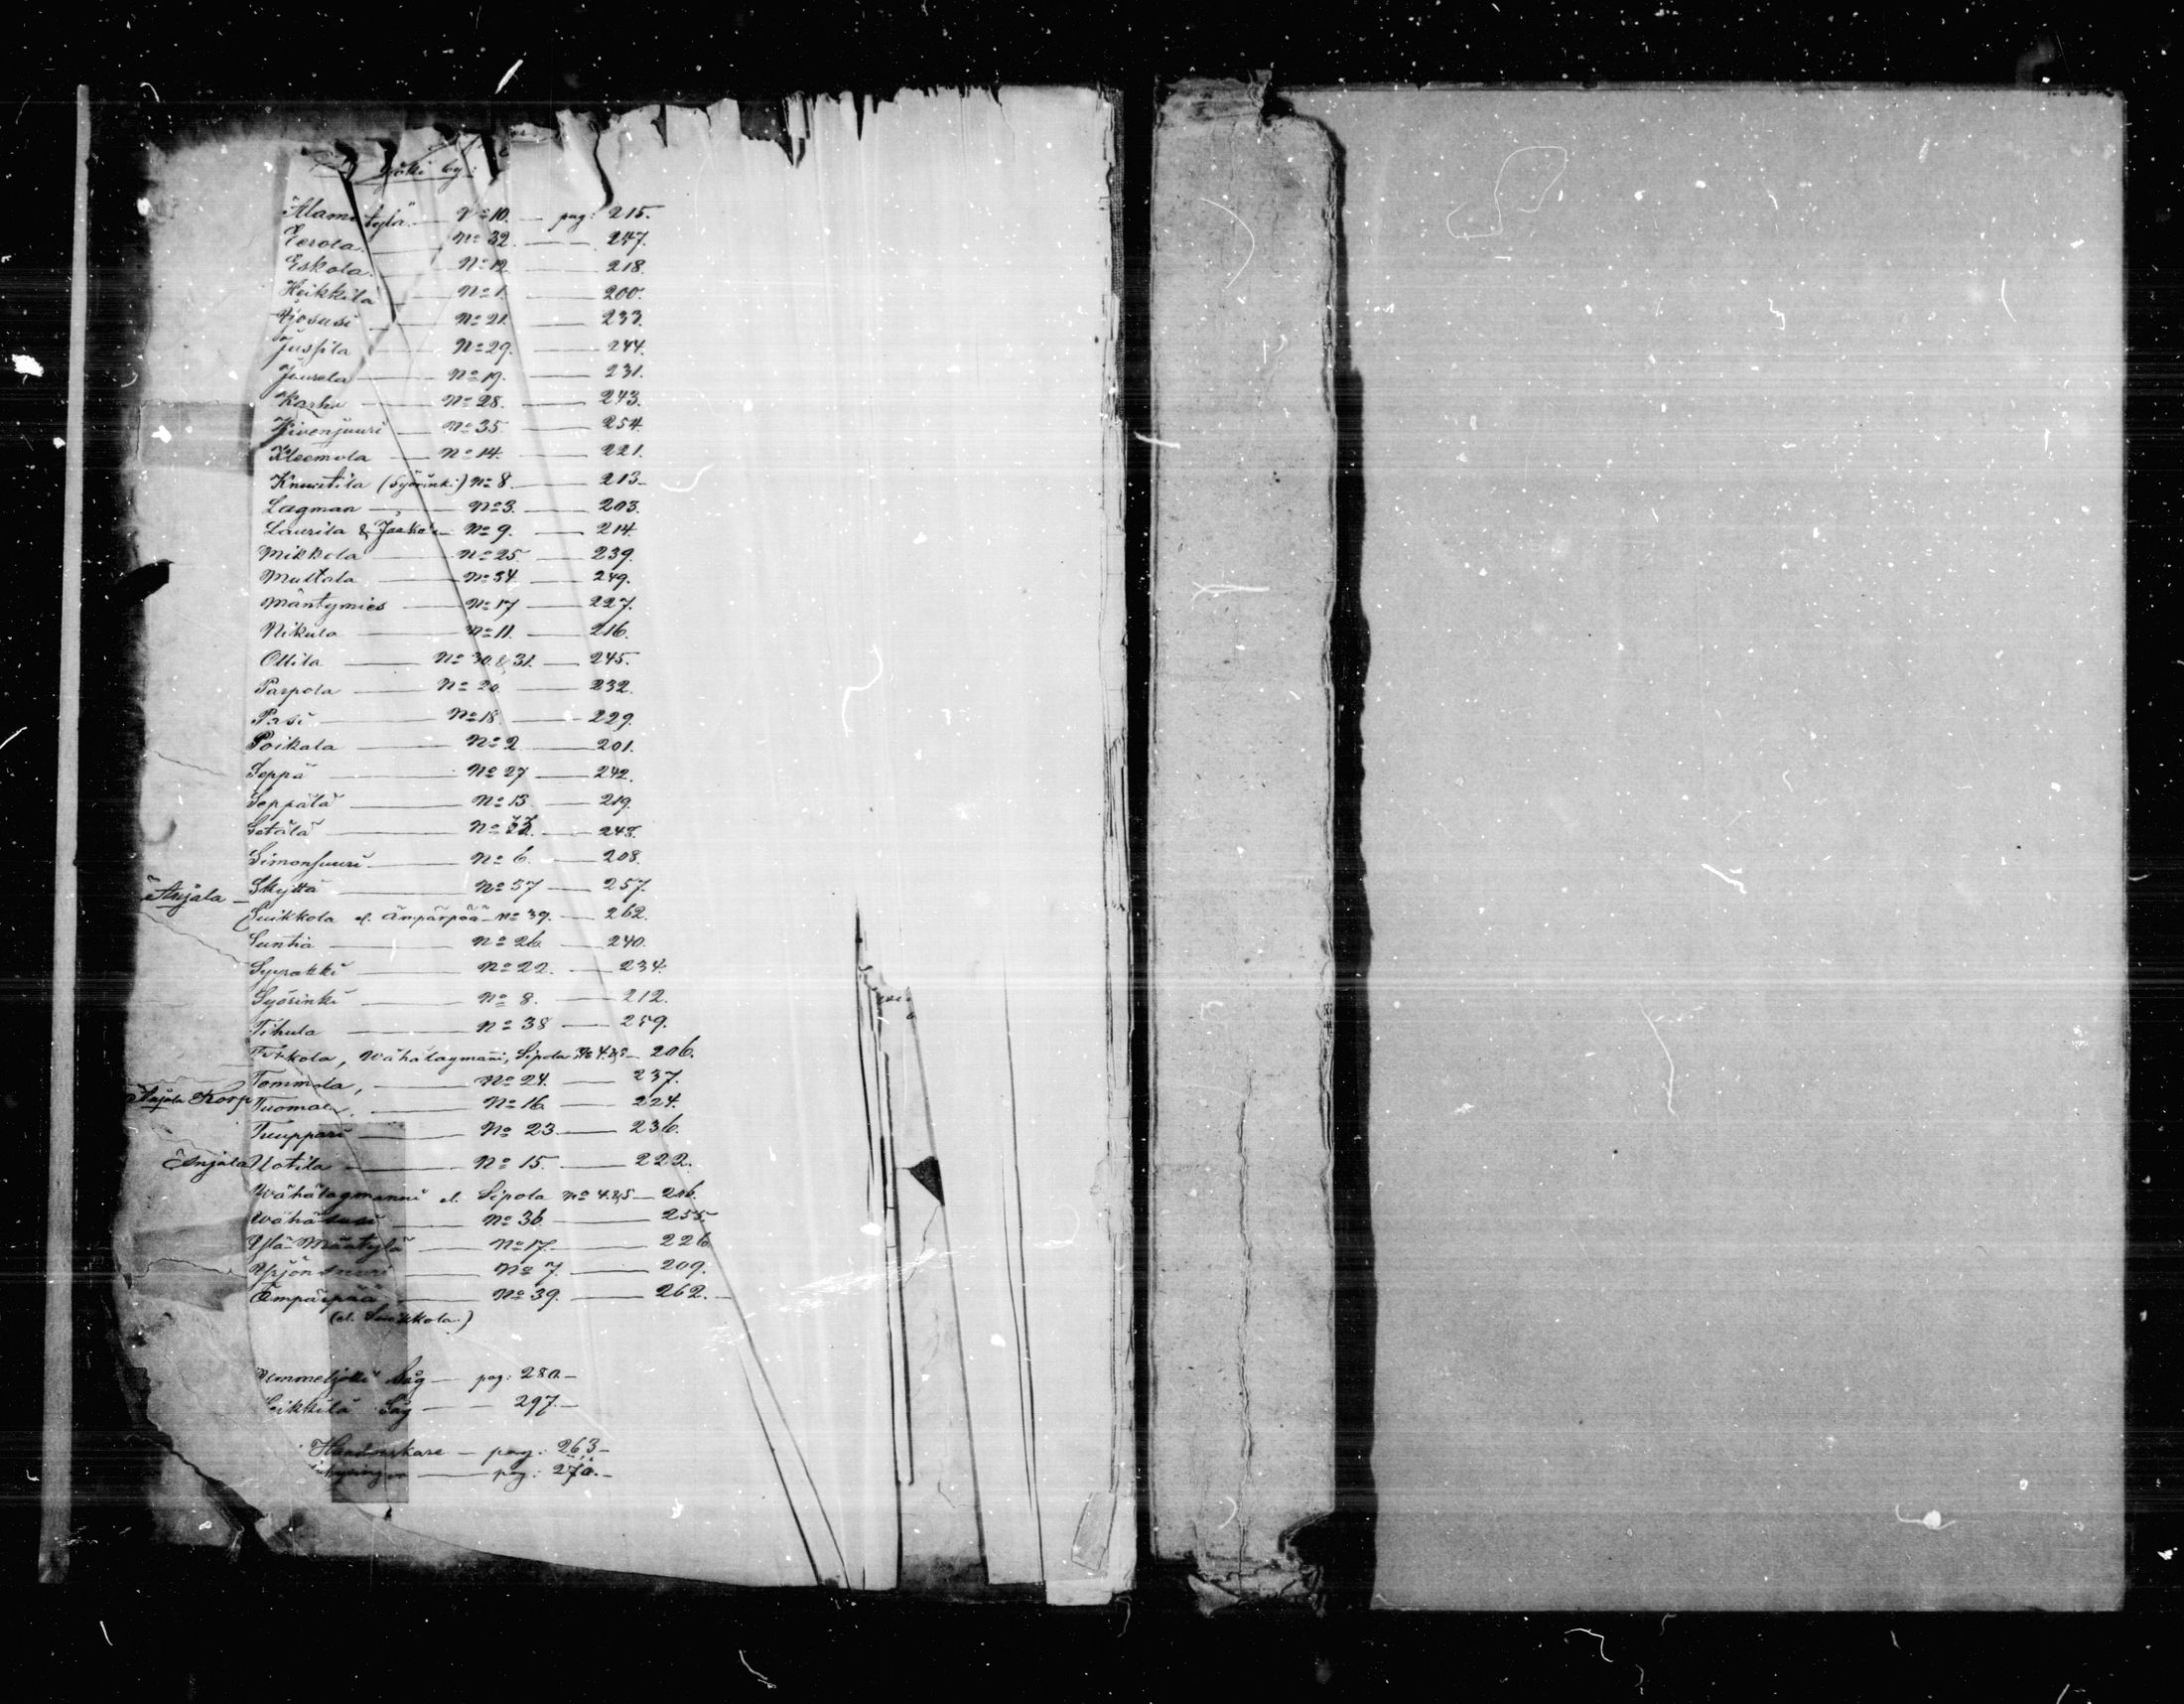 joki by:
Alamäntylä — No 10. — pag: 215.
Eerola. — No 32. — 247.
Eskola. — No 12 — 218.
Heikkilä — No 1. — 200.
Iljosusi — No 21. — 233.
Jussila — No 29. — 244.
Juurela — No 19. — 231.
Karhu — No 28. — 243.
Kivenjuuri — No 35 — 254.
Kleemola — No 14. — 221.
Knuutila (Syörinki) No 8. — 213
Lagman — No 3. — 203.
Laurila & Jaakola No 9. — 214.
Mikkola — No 25 — 239.
Multala — No 34 — 249.
Mäntymies — No 17 — 227.
Nikula — No 11. — 216.
Ollila — No 30. & 31. — 245.
Parpola — No 20. — 232.
Pasi — No 18. — 229.
Poikala — No 2 — 201.
Seppä — No 27 — 242.
Seppälä — No 13. — 219.
Setälä — No 33. — 248.
Simonsuuri — No 6. — 208.
Skyttä — No 37 — 257.
Anjala — Suikkola el. Ämpärpää — No 39. — 262.
Suntia — No 26. — 240.
Syyrakki — No 22. — 234.
Syörinki — No 8. — 212.
Tihula — No 38 — 259.
Tirkola, Wähälagmanni, Sipola No 4.&5 — 206.
Tommola, — No 24. — 237.
Anjala Korp Tuomala. — No 16. — 224.
Tuuppari — No 23. — 236.
Anjala Uotila — No 15. — 222.
Wähälagmanni el. Sipola No 4.&5 — 206.
Wähäsusi — No 36. — 255.
Ylä-Mäntylä — No 17. — 226.
Yrjönsuuri — No 7. — 209.
Ämpärpää — No 39. — 262.
(el. Suikkola.)
ummeljoki Såg — pag: 280.
eikkilä Såg — 297.
Handtverkare — pag: 263
hysingar — pag: 270.